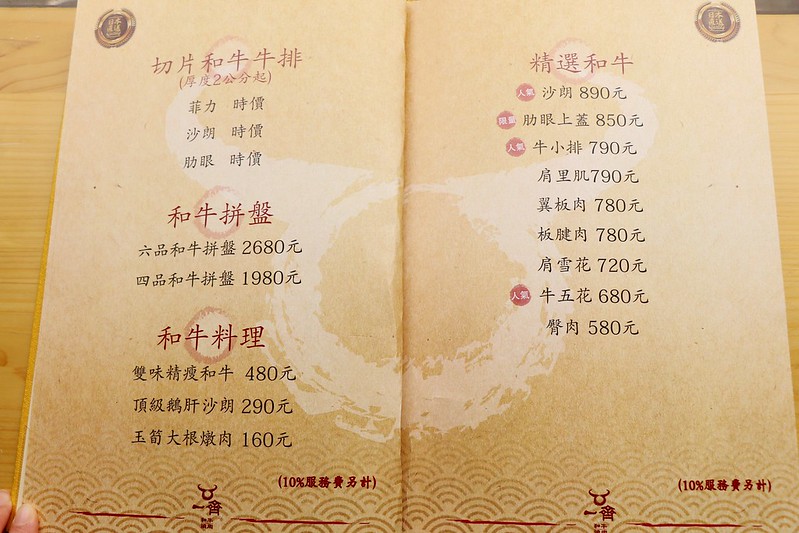 切片和牛牛排
(厚度2公分起)
菲力 時價
沙朗 時價
肋眼 時價
和牛拼盤
六品和牛拼盤 2680元
四品和牛拼盤 1980元
和牛料理
雙味精瘦和牛 480元
頂級鵝肝沙朗 290元
玉筍大根燉肉 160元
(10%服務費另計)
一齊
精選和牛
人氣 沙朗 890元
限量 肋眼上蓋 850元
人氣 牛小排 790元
肩里肌790元
翼板肉 780元
板腱肉 780元
肩雪花 720元
人氣 牛五花 680元
臀肉 580元
(10%服務費另計)
一齊